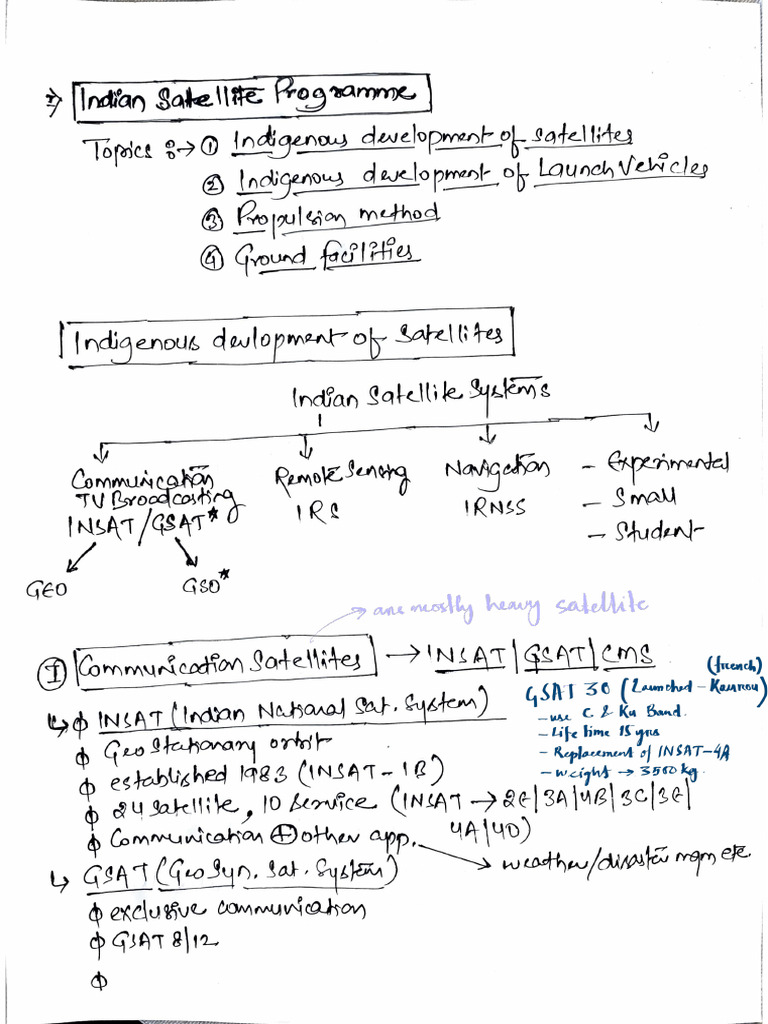 I) Indian Satellite Programme
Topics :→ ① Indigenous development of satellites
② Indigenous development of Launch Vehicles
③ Propulsion method
④ Ground facilities
Indigenous devlopment of Satellites
Indian Satellite Systems
Communication
TV Broadcasting
INSAT/GSAT*
GEO
GSO*
Remote Sensing
IRS
Navigation
IRNSS
- Experimental
- Small
- Student
are mostly heavy satellite
I Communication Satellites → INSAT|GSAT|CMS
(french)
GSAT 30 (Launched - Kourou)
- use C & Ku Band.
- Life time 15 yrs
- Replacement of INSAT-4A
- Weight → 3500 kg.
INSAT (Indian National Sat. System)
Geo Stationary orbit
established 1983 (INSAT-1B)
24 satellite, 10 Service (INSAT → 2E|3A|4B|3C|3E|
4A|4D)
Communication + other app.
weather/disaster mgm etc.
GSAT (Geo Syn. Sat. System)
exclusive communication
GSAT 8/12